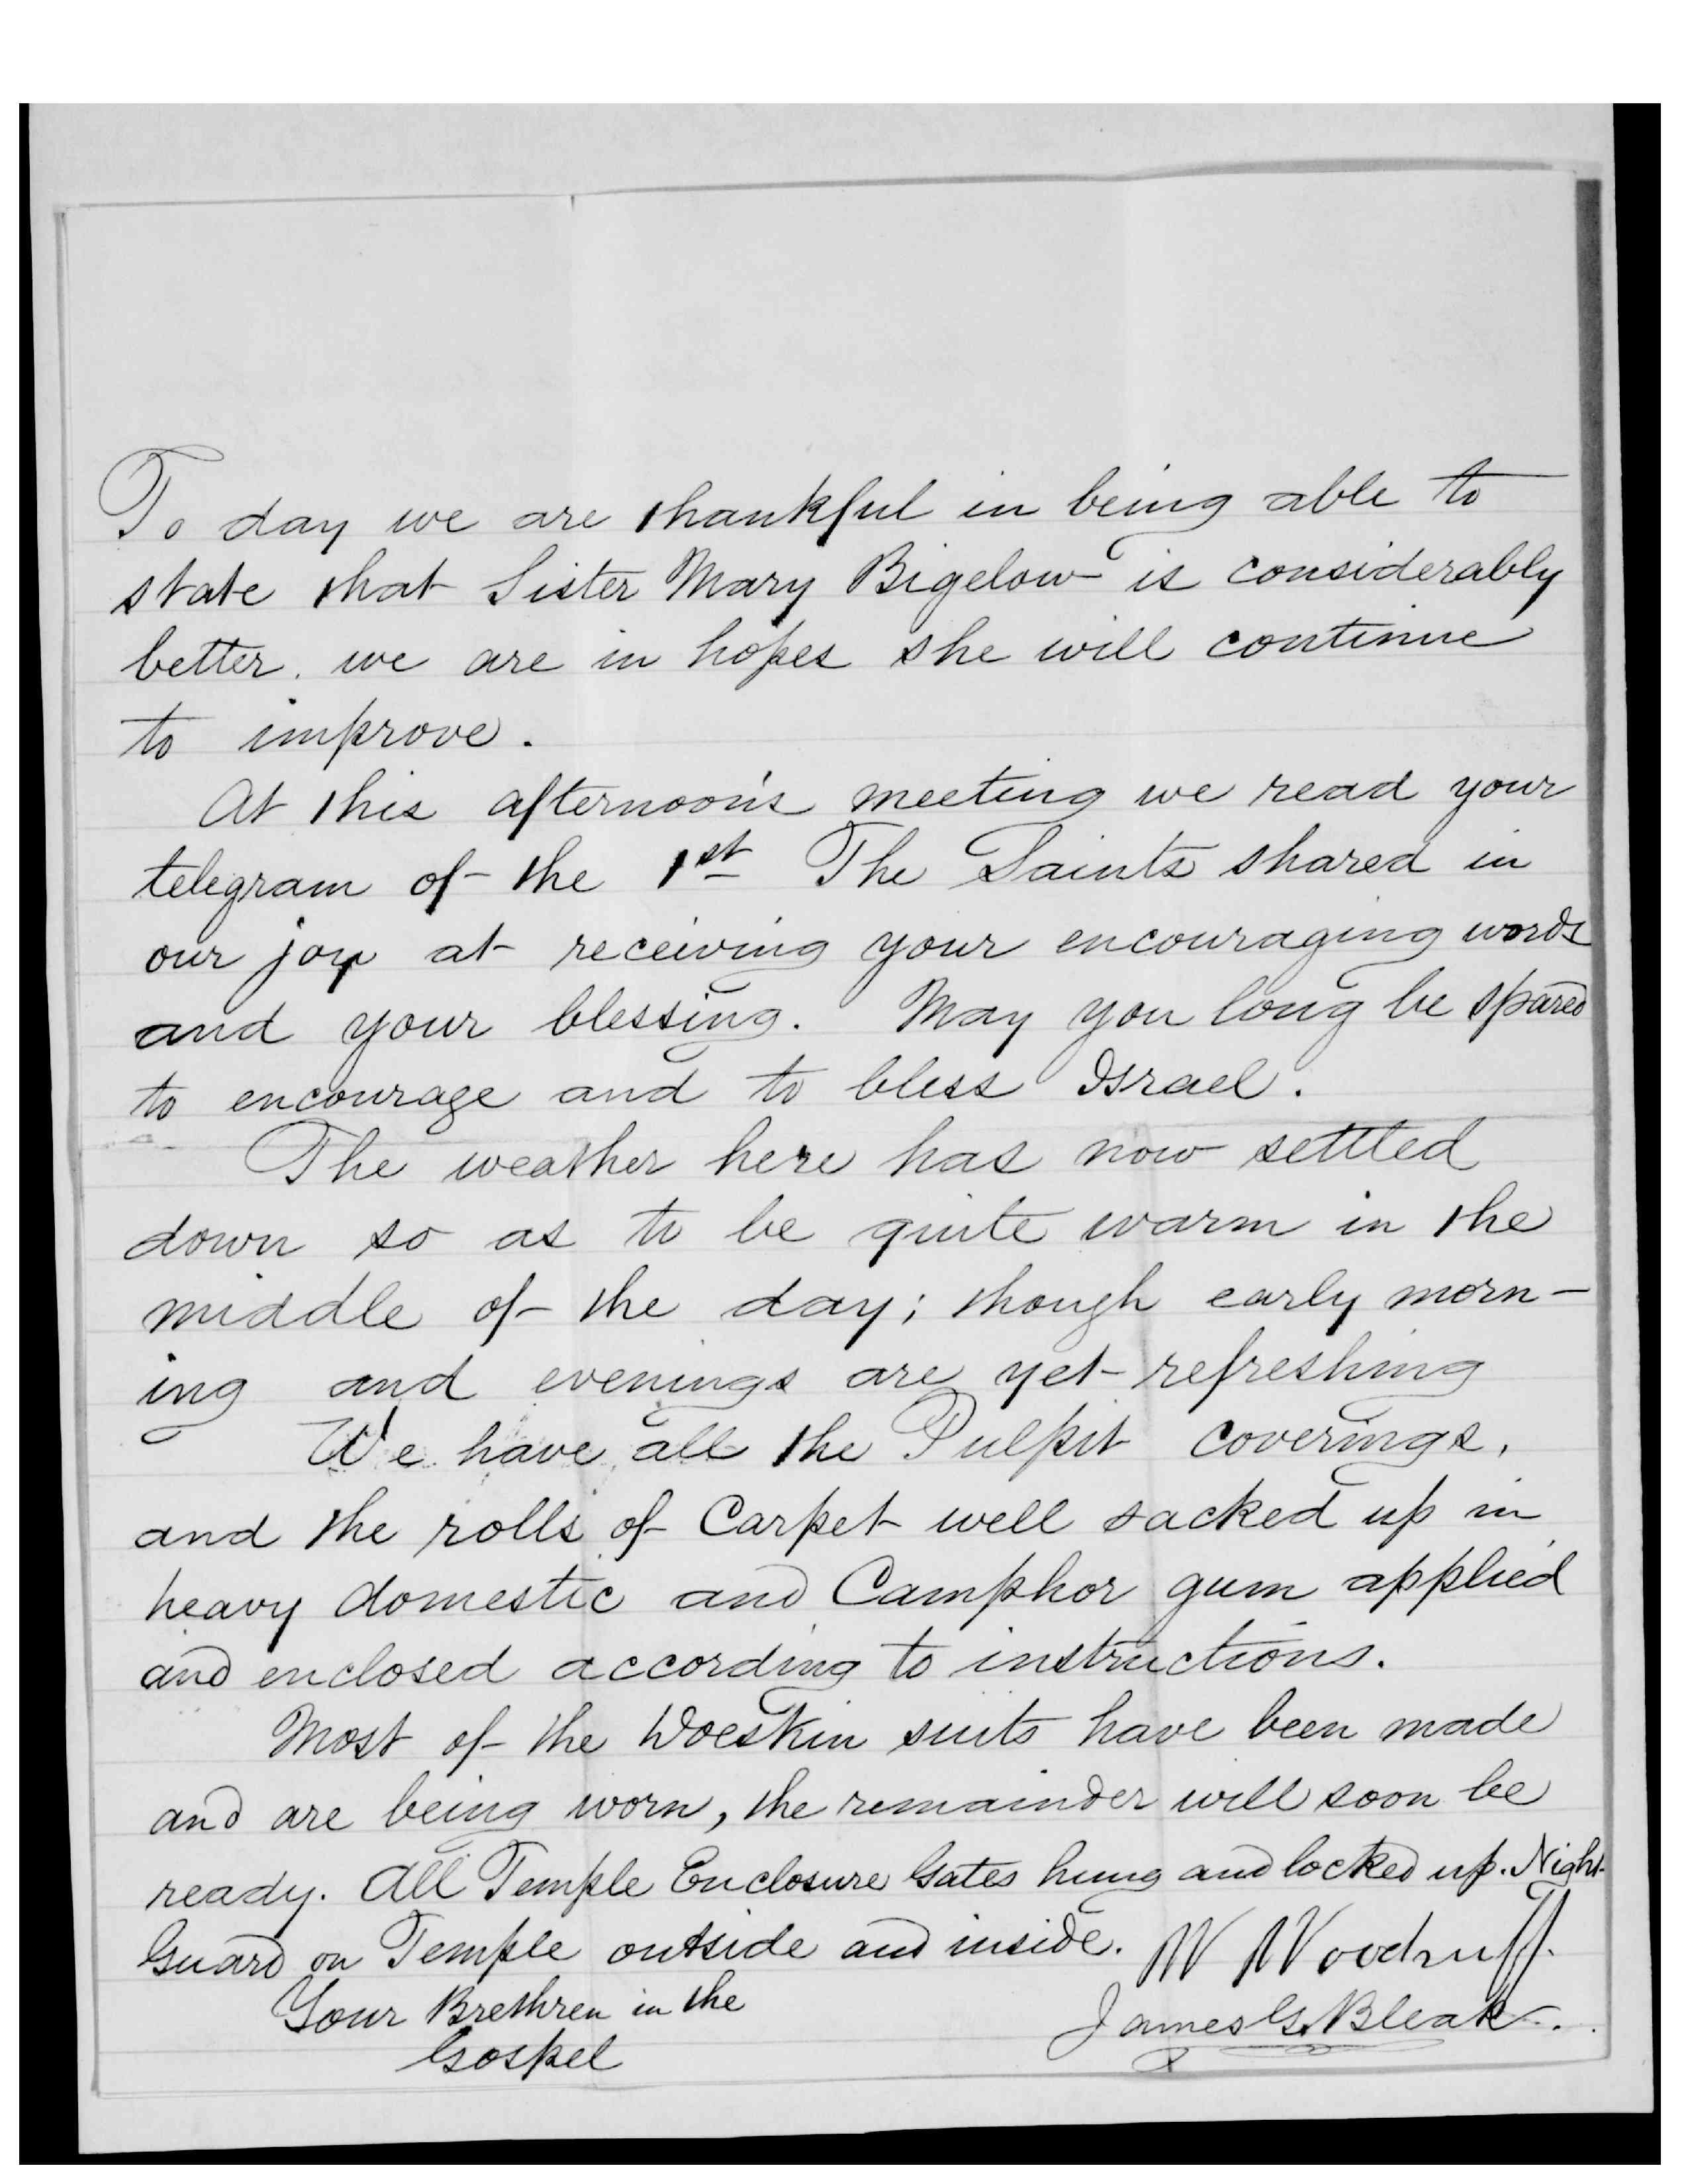 To day we are thankful in being able to
state that Sister Mary Bigelow is considerably
better. we are in hopes she will continue
to improve.
At this afternoon's meeting we read your
telegram of the 1st The Saints shared in
our joy at receiving your encouraging words
and your blessing. May you long be spared
to encourage and to bless Israel.
The weather here has now settled
down so as to be quite warm in the
middle of the day; though early morn-
ing and evenings are yet refreshing
We have all the Pulpit coverings,
and the rolls of Carpet well sacked up in
heavy domestic and Camphor gum applied
and enclosed according to instructions.
Most of the Doeskin suits have been made
and are being worn, the remainder will soon be
ready. All Temple Enclosure Gates hung and locked up. Night
Guard on Temple outside and inside. W Woodruff.
Your Brethren in the
Gospel
James G. Bleak.